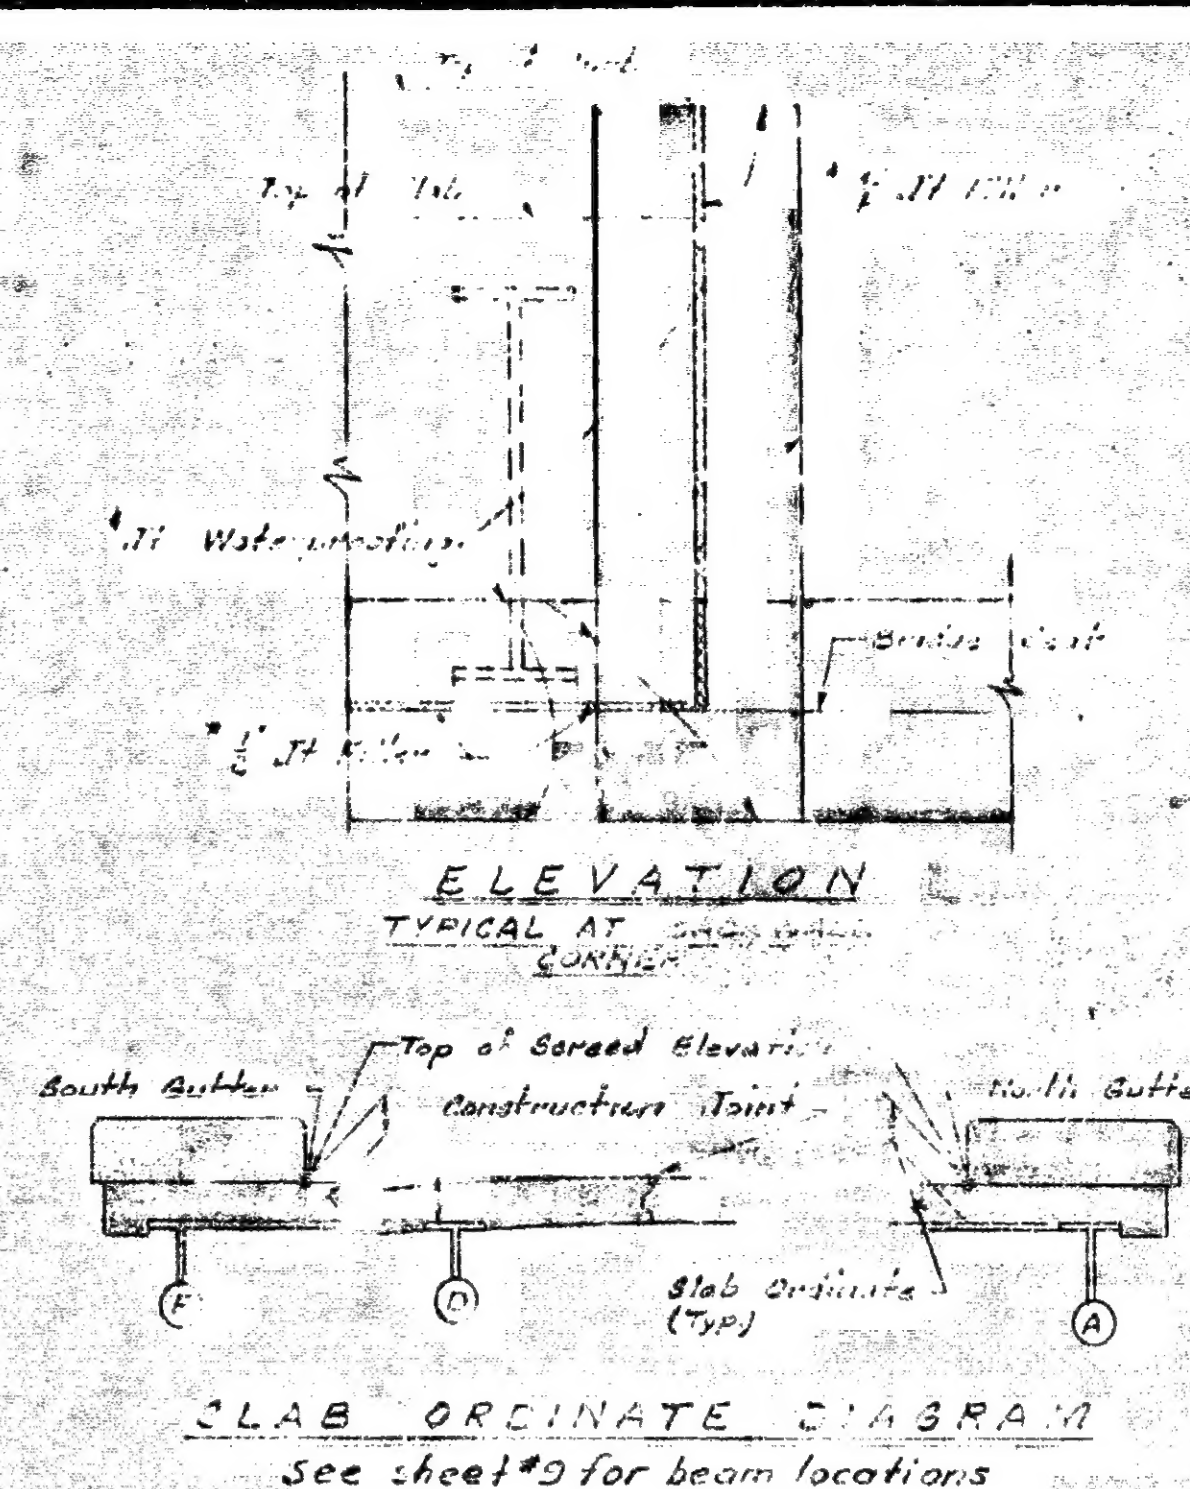 Top of Slab
* ½" Jt Filler
* Jt Waterproofing
Bridge Seat
* ½" Jt Filler
ELEVATION
TYPICAL AT
CORNER
Top of Screed Elevation
South Gutter
Construction Joint
North Gutter
Slab Ordinate
(Typ.)
F
D
A
SLAB ORDINATE DIAGRAM
See sheet #9 for beam locations